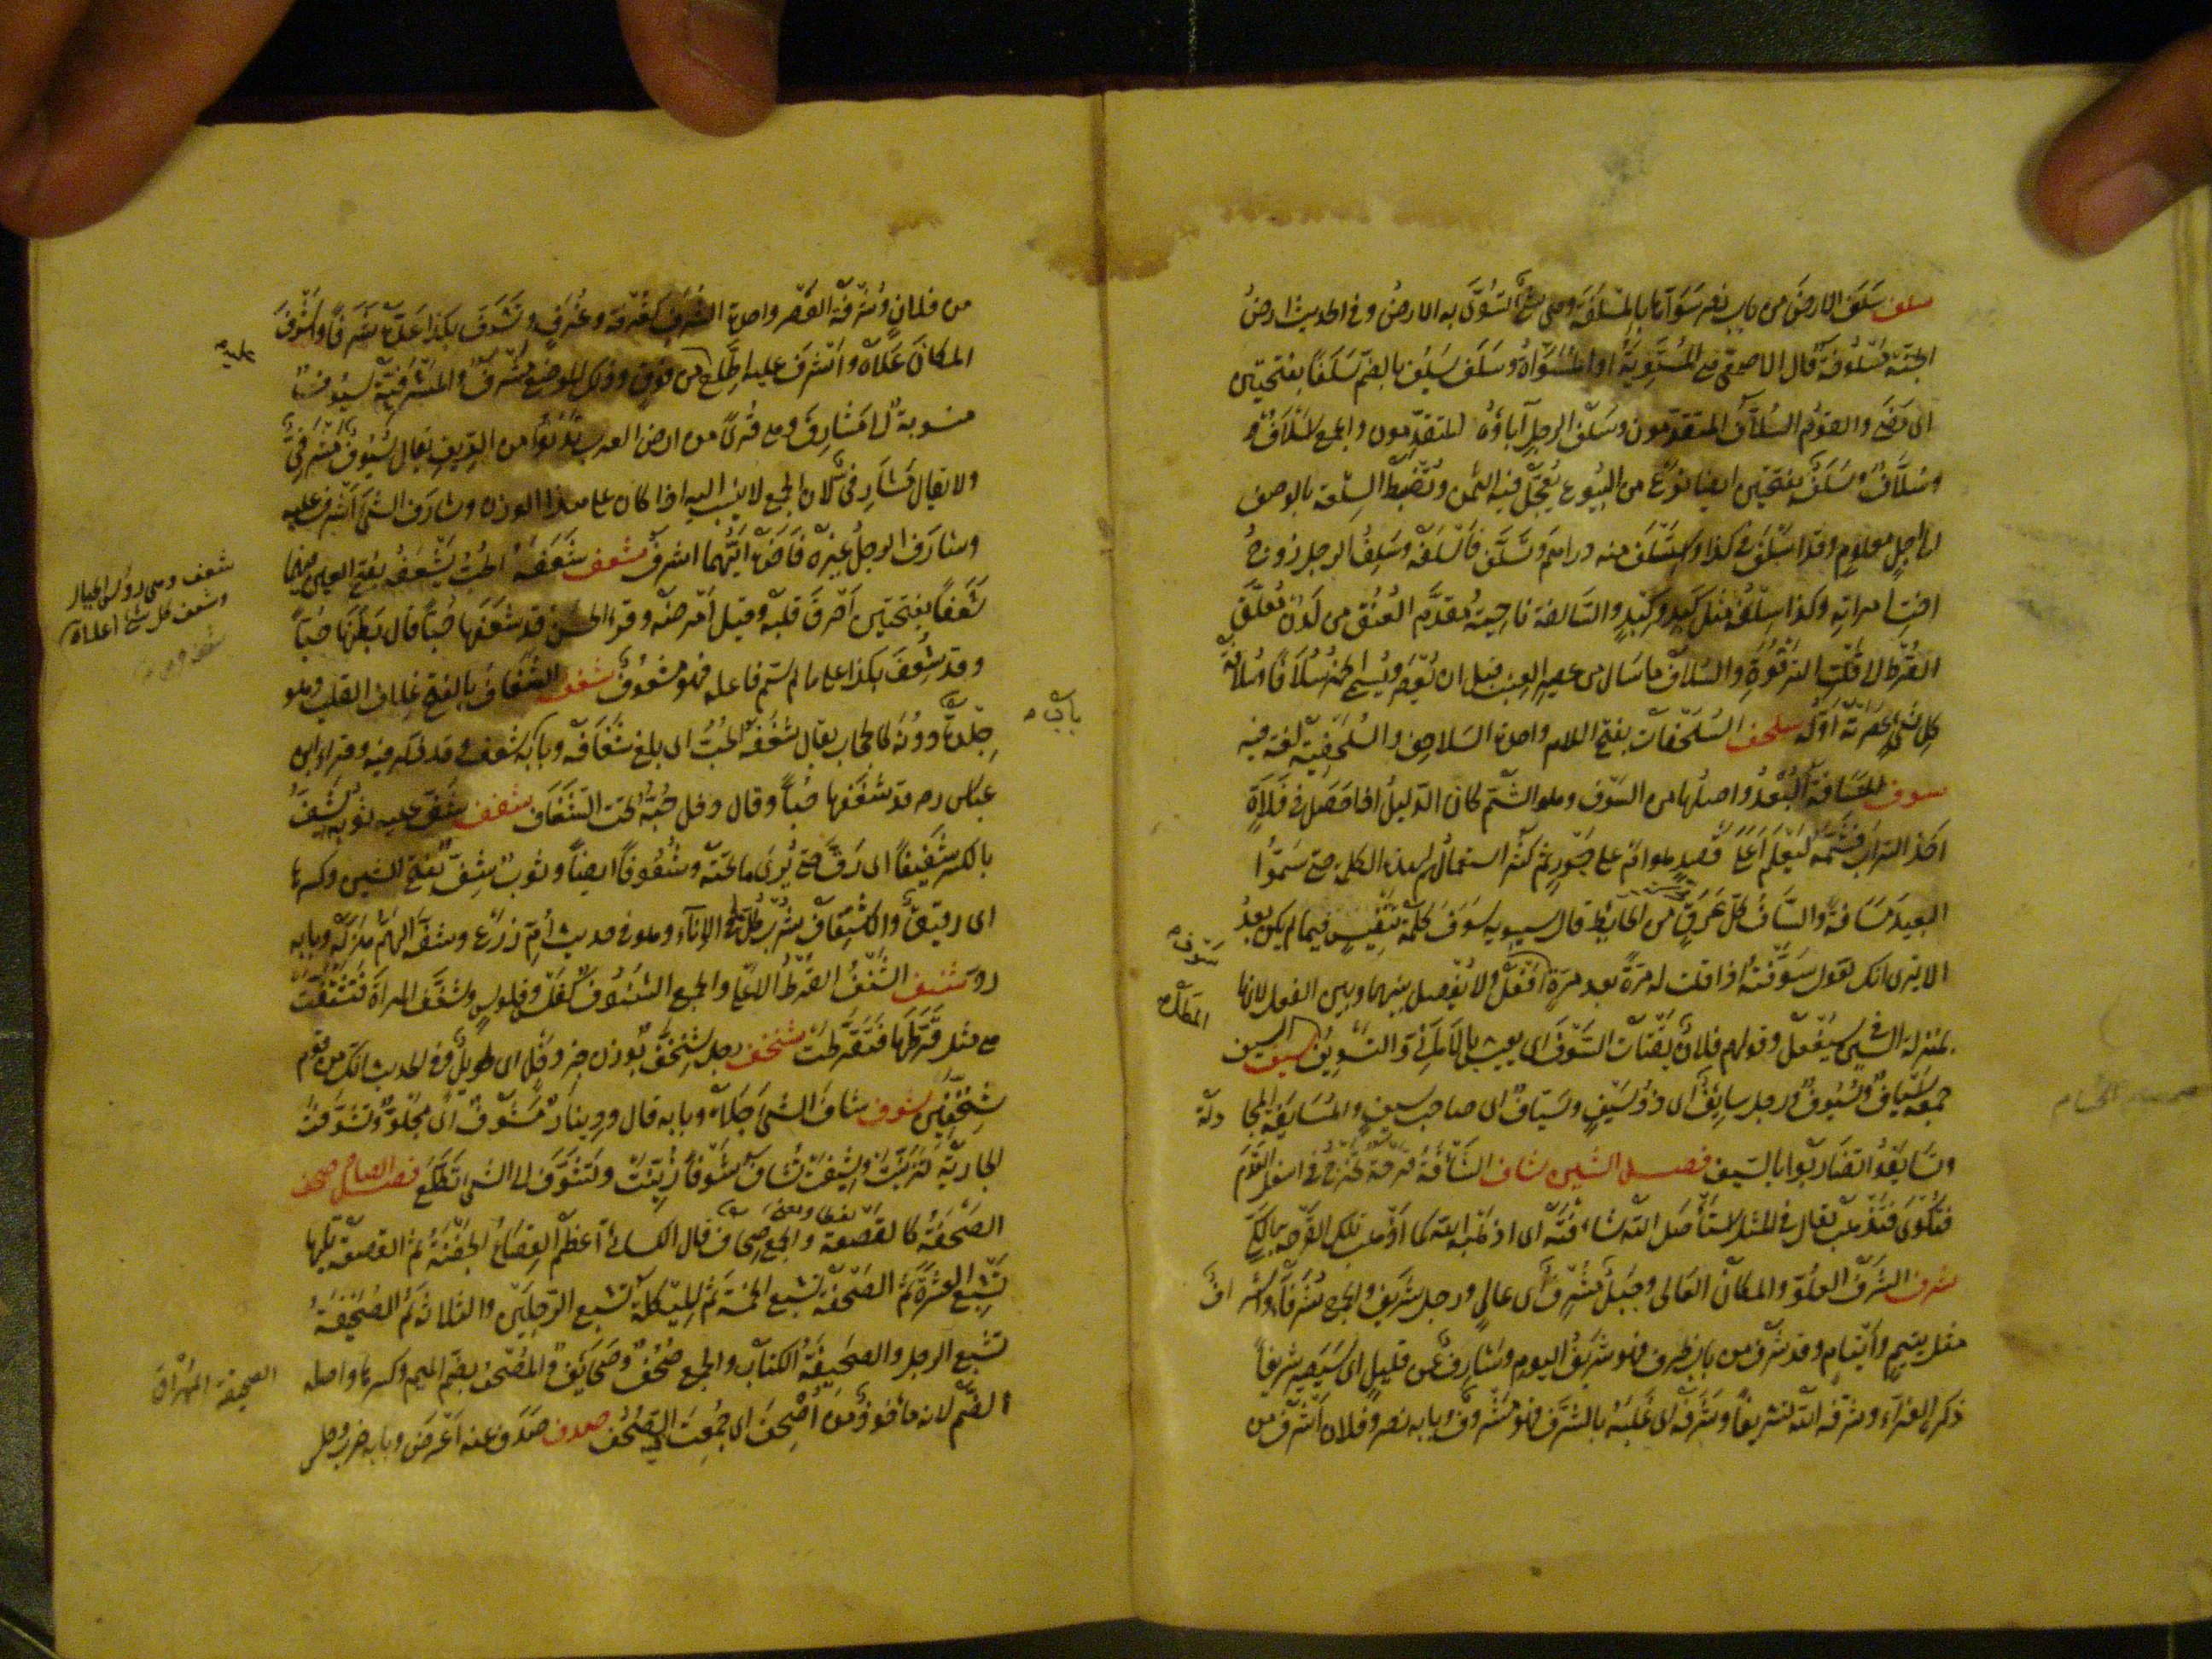 سلف سَلَفَ الارضَ من باب نصر سَوَّاها بِالمِسْلَفَة وهى شئ تُسَوَّى به الارضُ وفى الحديث ارضُ
الجنّة مَسْلُوفَةٌ قال الاصمعى هى المُسْتَوِيَةُ او المُسَوَّاةُ وسَلَف يَسْلُف بالضم سَلَفًا بفتحتين
اى مَضَى والقومُ السُلَّافُ المتقدّمون وسَلَفُ الرجلِ آباؤُه المتقدّمون والجمع اَسْلَافٌ
وسُلَّافٌ والسَلَفُ بفتحتين ايضا نوعٌ من البُيُوع يُعَجَّلُ فيه الثمن وتُضْبَطُ السِلْعَة بالوصف
الى اجلٍ معلومٍ وقد اَسْلَفَ فى كذا واسْتَسْلَفَ منه دراهمَ وتَسَلَّفَ فَاَسْلَفَه وسَلِفُ الرجلِ زوجُ
اختِ امراتِه وكذا سِلْفُه مثل كَبِدٍ وكِبْدٍ والسَالِفة ناحيةُ مُقَدَّمِ العُنُق من لَدُنْ مُعَلَّقِ
القُرْط الى قَلْتِ التَرْقُوَةِ والسُلَافُ ما سَال من عصير العِنَب قبل ان يُعْصَر ويُسَمَّى الخمر سُلَافًا وسُلافة
كل شئٍ عَصَرْتَهُ اَوَّلُه سلحف السُلَحْفَاة بفتح اللام واحدة السَلاحِف والسُلَحْفِيَة لغة فيه
سوف المَسَافَة البُعْدُ واصلها من السَوْف وهو الشَمّ كان الدَليلُ اذا حَصَل فى فَلَاةٍ
اَخَذ التُرابَ فَشَمَّه لِيَعْلَم اَعَلَى قَصْدٍ هو ام على جَوْرٍ ثم كثُر استعمالُهم لهذه الكلمة حتى سَمَّوُا
البعيدَ مَسَافةً والسَافُ كلّ عَرَقٍ من الحائِط قال سيبويه سَوْفَ كلمةُ تَنْفِيسٍ فيما لم يكن بعدُ
الا ترى انك تقول سَوَّفْتُهُ اذا قلت له مرّةً بعد مرّةٍ سَوْفَ اَفْعَلُ ولا يُفْصَل بينها وبين الفعل لانها
بمنزلة السين فى سَيَفْعَل وقولهم فلانٌ يَقْتَاتُ السَوْفَ اى يعيش بالاَمَانِىّ والتَسْوِيفُ المَطْلُ سيف السيف
جمعه اَسْيَافٌ وسُيُوفٌ ورجل سائِفٌ اى ذو سَيْفٍ وسَيَّافٌ اى صاحب سيفٍ والمُسَايَفَة المجادلة
وتَسَايَفُوا تَضَاربُوا بالسَيف فصل الشين شاف الشَأْفَةُ قَرْحَة تَخْرُج فى اسفل القَدَم
فتُكْوَى فتَذْهَب يقال فى المثل اسْتَأْصَل اللّه شَأْفَتَهُ اى اذهَبَه اللّه كما اَذْهَبَ تلك القَرْحَة بالكَىّ
شرف الشَرَفُ العُلُوّ والمكانُ العَالى وجَبَلٌ مُشْرِفٌ اى عالٍ ورجل شريف والجمع شُرَفَاءُ واَشْرَافٌ
مثل يتيمٍ واَيْتَامٍ وقد شَرُفَ من باب ظرف فهو شَرِيفٌ اليومَ وشَارِفٌ عن قليلٍ اى سَيَصِير شريفًا
ذكره الفرّاء وشرّفه اللّه تشريفًا وشَرَفَه اى غَلَبَه بالشَرَف فهو مَشْرُوفٌ وبابه نصر وفلان اَشْرَفُ من
سوف
المَطْل
من فلانٍ وشُرْفَة القَصْر واحدة الشُرَف كغُرْفَة وغُرَفٍ وتَشَرَّفَ بكذا عَدَّهُ شَرَفًا واَشْرَفَ
المكانَ عَلَاهُ واَشْرَفَ عليه اِطَّلَعَ من فوقٍ وذلك الموضع مُشْرَفٌ والمَشْرَفِيَّة سُيُوفٌ
منسوبةٌ الى مَشَارِفَ وهى قُرًى من ارض العرب تَدْنُو من الرِيف يقال سُيُوفٌ مَشْرَفِىٌّ
ولا يقال مَشَارِفِىٌّ لان الجمع لا يُنْسَب اليه اذا كان على هذا الوزن وشارَفَ الشئَ اَشْرَفَ عليه
وشَارَف الرجلُ غيرَه فَاخَرَه اَيُّهما اشرفُ شعف شَعَفَهُ الحُبُّ يَشْعَفُهُ بفتح العين فيهما
شَعَفًا بفتحتين اَحْرَقَ قلبَه وقيل اَمْرَضَه وقرأ الحسن قد شَعَفَها حُبًّا قال بَطَنَها حُبًّا
وقد شُعِفَ بكذا على ما لم يسمّ فاعله فهو مَشْعُوفٌ شغف الشَغَافُ بالفتح غِلاف القلب وهو
جِلْدَةٌ دونَه كالحِجاب يقال شَغَفَهُ الحُبُّ اى بلغ شَغَافَه وبابه شَعف وقد ذكر فيه وقرأ ابن
عباس رضى قد شَغَفَها حُبًّا وقال دخل حُبُّهُ تحت الشَغَاف شفف شَفَّ عليه ثوبُه يَشِفُّ
بالكسر شَفِيفًا اى رَقَّ حتى يُرى ما تحته وشُفُوفًا ايضًا وثوبٌ شِفٌّ بفتح الشين وكسرها
اى رقيقٌ والاشْتِفَافُ شُرْبُ كلّ ما فى الاِناء وهو فى حديث اُمّ زَرْعٍ وشَفَّهُ الهَمّ هَزَلَهُ وبابه
ردّ شنف الشَنْفُ القُرْطُ الاَعْلَى والجمع الشُنُوف كفَلْسٍ وفلوسٍ وشَنَّف المراةَ فتَشَنَّفَتْ
هى مثل قَرَّطَها فَتَقَرَّطَتْ شنخف رجل شِنَّخْفٌ بوزن جِرْدَحْلٍ اى طويلٌ وفى الحديث انك من قوم
شِنَّخْفِينَ شوف شافَ الشئَ جَلَاهُ وبابه قال ودينارٌ مَشُوفٌ اى مَجْلُوٌّ وتَشَوَّفَتْ
الجاريةُ تَزَيَّنَتْ وشِيفَتْ تُشَافُ شَوْفًا زُيِّنَتْ وتَشَوَّف الى الشئ تَطَلَّعَ فصل الصاد صحف
الصَحْفَةُ كالقَصْعَة لفظا ومعنى والجمع صِحَاف قال الكسائى اَعْظَمُ القِصَاع الجَفْنَةُ ثم القصعة تليها
تُشْبِع العَشَرَةَ ثم الصَحْفَة تُشْبِع الخمسة ثم المِئْكَلَة تُشْبِع الرجلَيْن والثلاثة ثم الصُحَيْفَةُ
تشبع الرجل والصَحِيفَةُ الكتابُ والجمع صُحُفٌ وصَحَائِفُ والمُصْحَفُ بضم الميم وكسرها واصله
الضَمّ لانه مأخوذٌ من اُصْحِفَ اى جُمِعَتْ فيه الصُحُف صدف صَدَف عنه اَعْرَضَ وبابه ضرب وجلس
شعف وهى روس الجبال
وشعف كل شئ اعلاه
الصحيفة المُهْرَاق